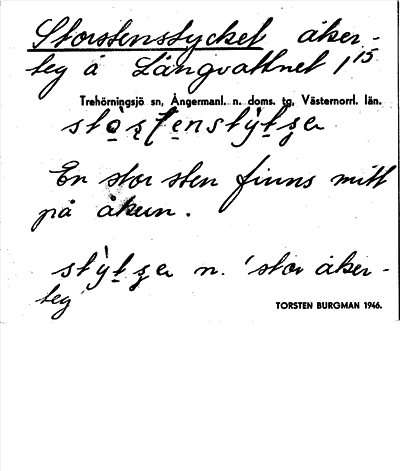 Storstensstycket åker-
teg å Långvattnet 1/15
Trehörningsjö sn, Ångermanl. n. doms. tg, Västernorrl. län.
En stor sten finns mitt
på åkern.
n. 'stor åker-
teg'
TORSTEN BURGMAN 1946.